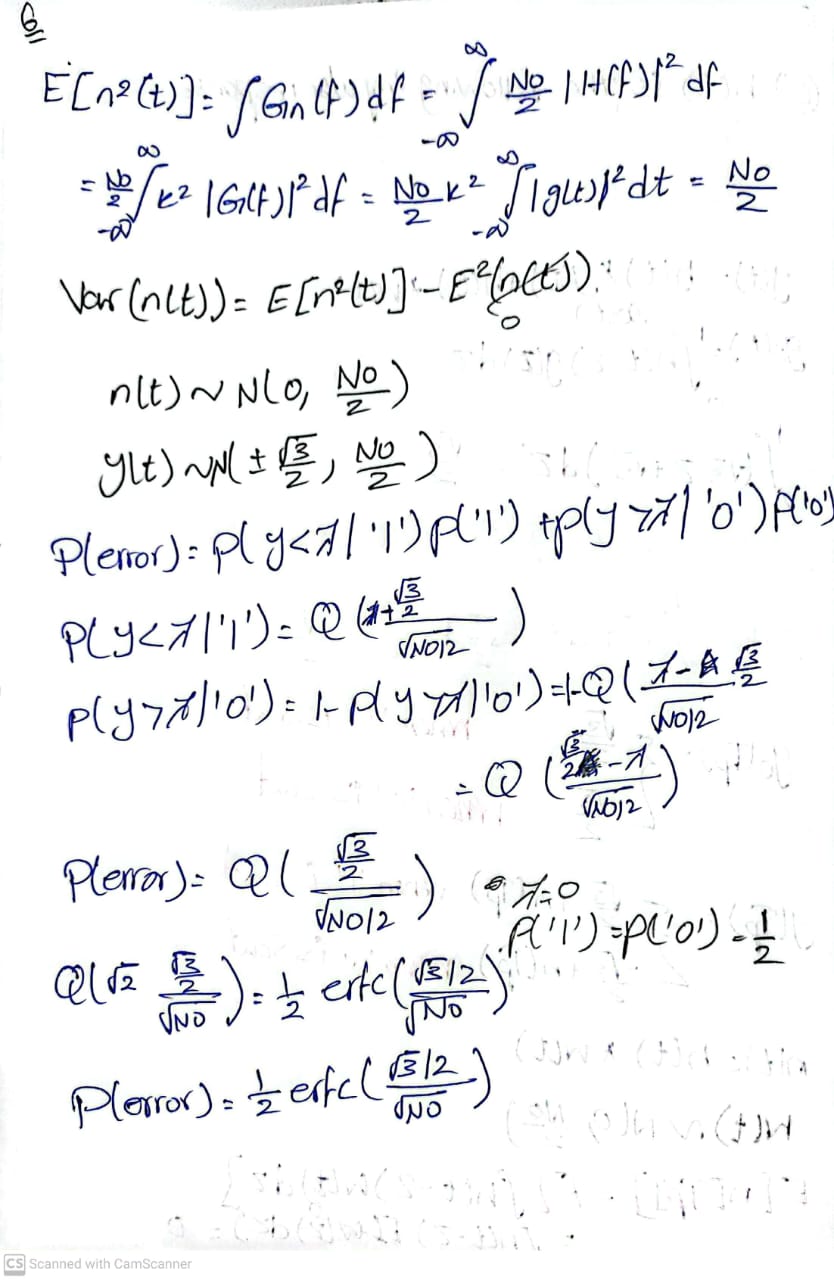 6
E[n²(t)] = ∫Gn(f)df = ∫_{-∞}^{∞} No/2 |H(f)|² df
= No/2 ∫_{-∞}^{∞} k² |G(f)|² df = No/2 k² ∫_{-∞}^{∞} |g(t)|² dt = No/2
Var(n(t)) = E[n²(t)] - E²(n(t)) 0
n(t) ~ N(0, No/2)
y(t) ~ N(± √3/2, No/2)
P(error) = P(y<λ|'1')P('1') + P(y>λ|'0')P('0')
P(y<λ|'1') = Q((λ + √3/2)/√No/2)
P(y>λ|'0') = 1 - P(y>λ|'0') = 1 - Q((λ - √3/2)/√No/2)
= Q((√3/2 - λ)/√No/2)
P(error) = Q((√3/2)/√No/2) λ=0
P('1') = P('0') = 1/2
Q(√2 (√3/2)/√No) = 1/2 erfc((√3/2)/√No)
P(error) = 1/2 erfc((√3/2)/√No)
CS Scanned with CamScanner